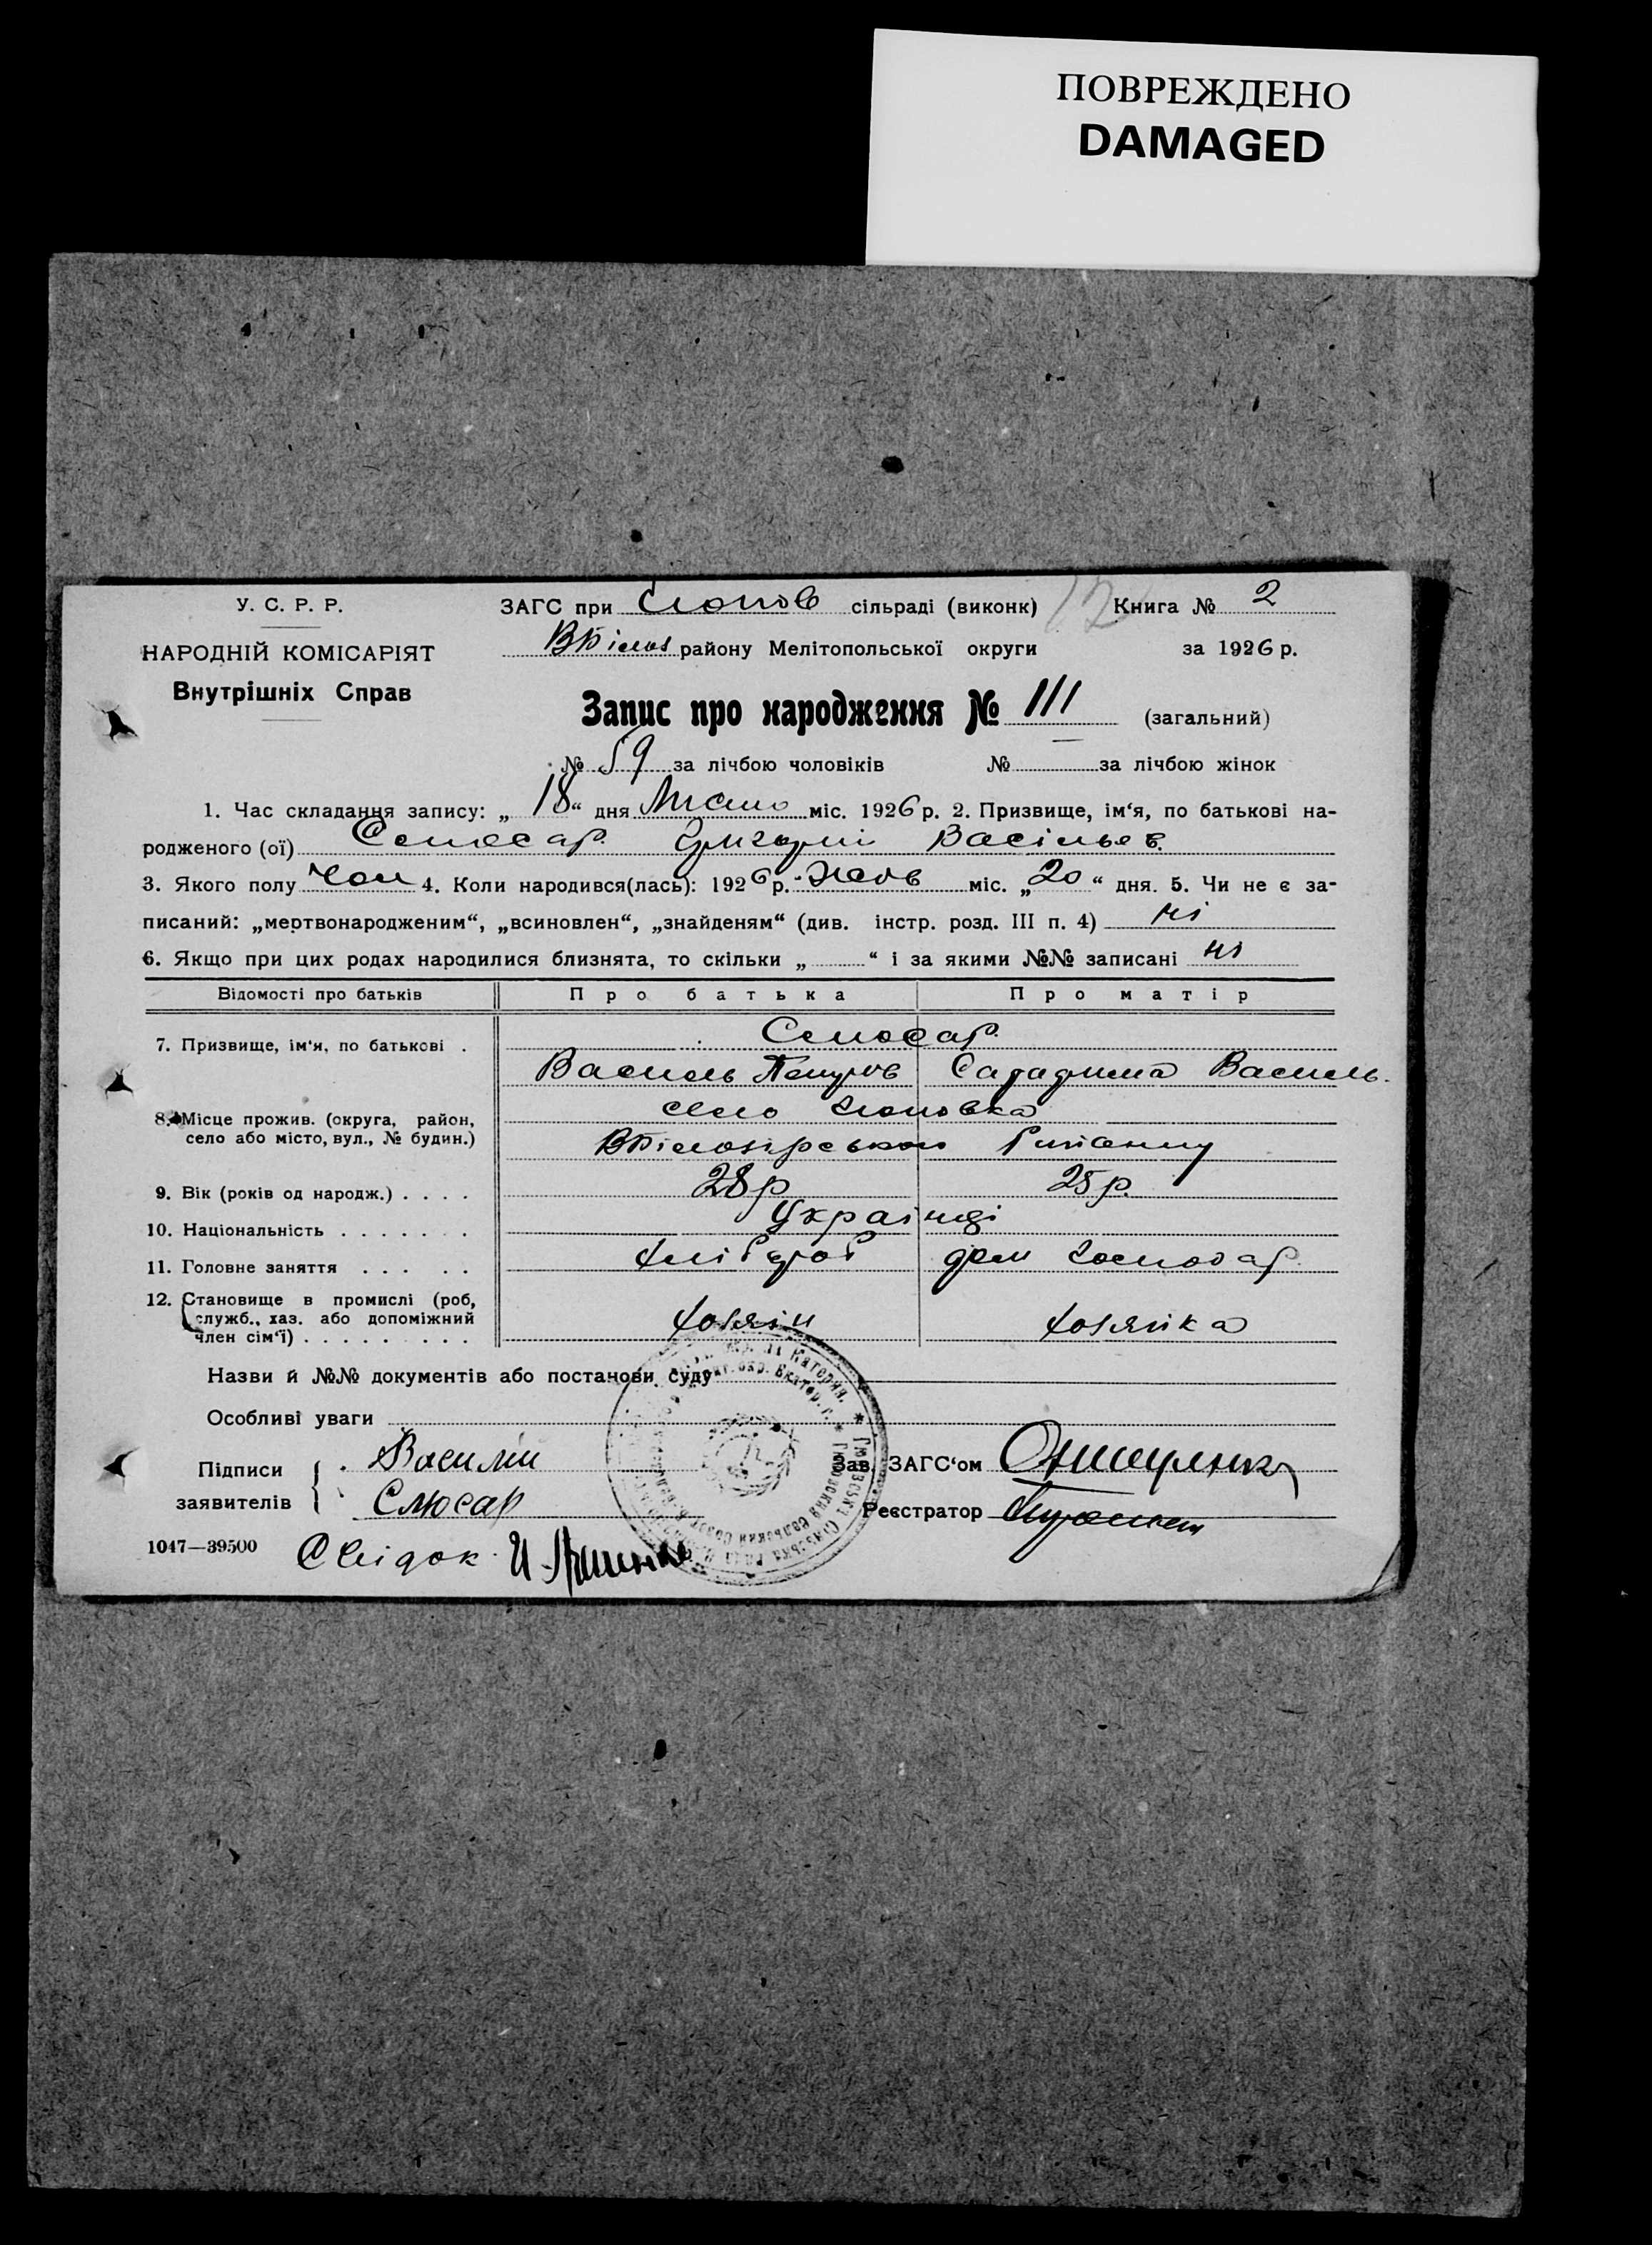 ПОВРЕЖДЕНО
DAMAGED
У. С. Р. Р.
НАРОДНІЙ КОМІСАРІЯТ
Внутрішніх Справ
ЗАГС при сільраді (виконк) 12 Книга № 2
ВБілоз району Мелітопольської округи за 1926 р.
Запис про народження № 111 (загальний)
№ 59 за лічбою чоловіків № за лічбою жінок
1. Час складання запису: „ 18 “ дня міс. 1926 р. 2. Призвище, ім‘я, по батькові на-
родженого (ої) Слюсар Григорій Васільев.
3. Якого полу Чол 4. Коли народився(лась): 1926 р. міс. „ 20 “ дня. 5. Чи не є за-
писаний: „мертвонародженим“, „всиновлен“, „знайденям“ (див. інстр. розд. III п. 4) ні
6. Якщо при цих родах народилися близнята, то скільки „ “ і за якими №№ записані ні
Відомості про батьків Про батька Про матір
7. Призвище, ім‘я, по батькові . Слюсар.
Василь Петров Василь.
8. Місце прожив. (округа, район, село
село або місто, вул., № будин.) ВБілозірського Району
9. Вік (років од народж.) . . . . 28 р 25 р.
10. Національність . . . . . . . Українці
11. Головне заняття . . . . . хлібороб дом господар.
12. Становище в промислі (роб,
служб., хаз. або допоміжний
член сім‘ї) . . . . . . . . . хозяін хозяйка
Назви й №№ документів або постанови суду
Особливі уваги
Підписи Василий Зав. ЗАГС‘ом Онищенко
заявителів Слюсар Реєстратор
1047—39500 Свідок